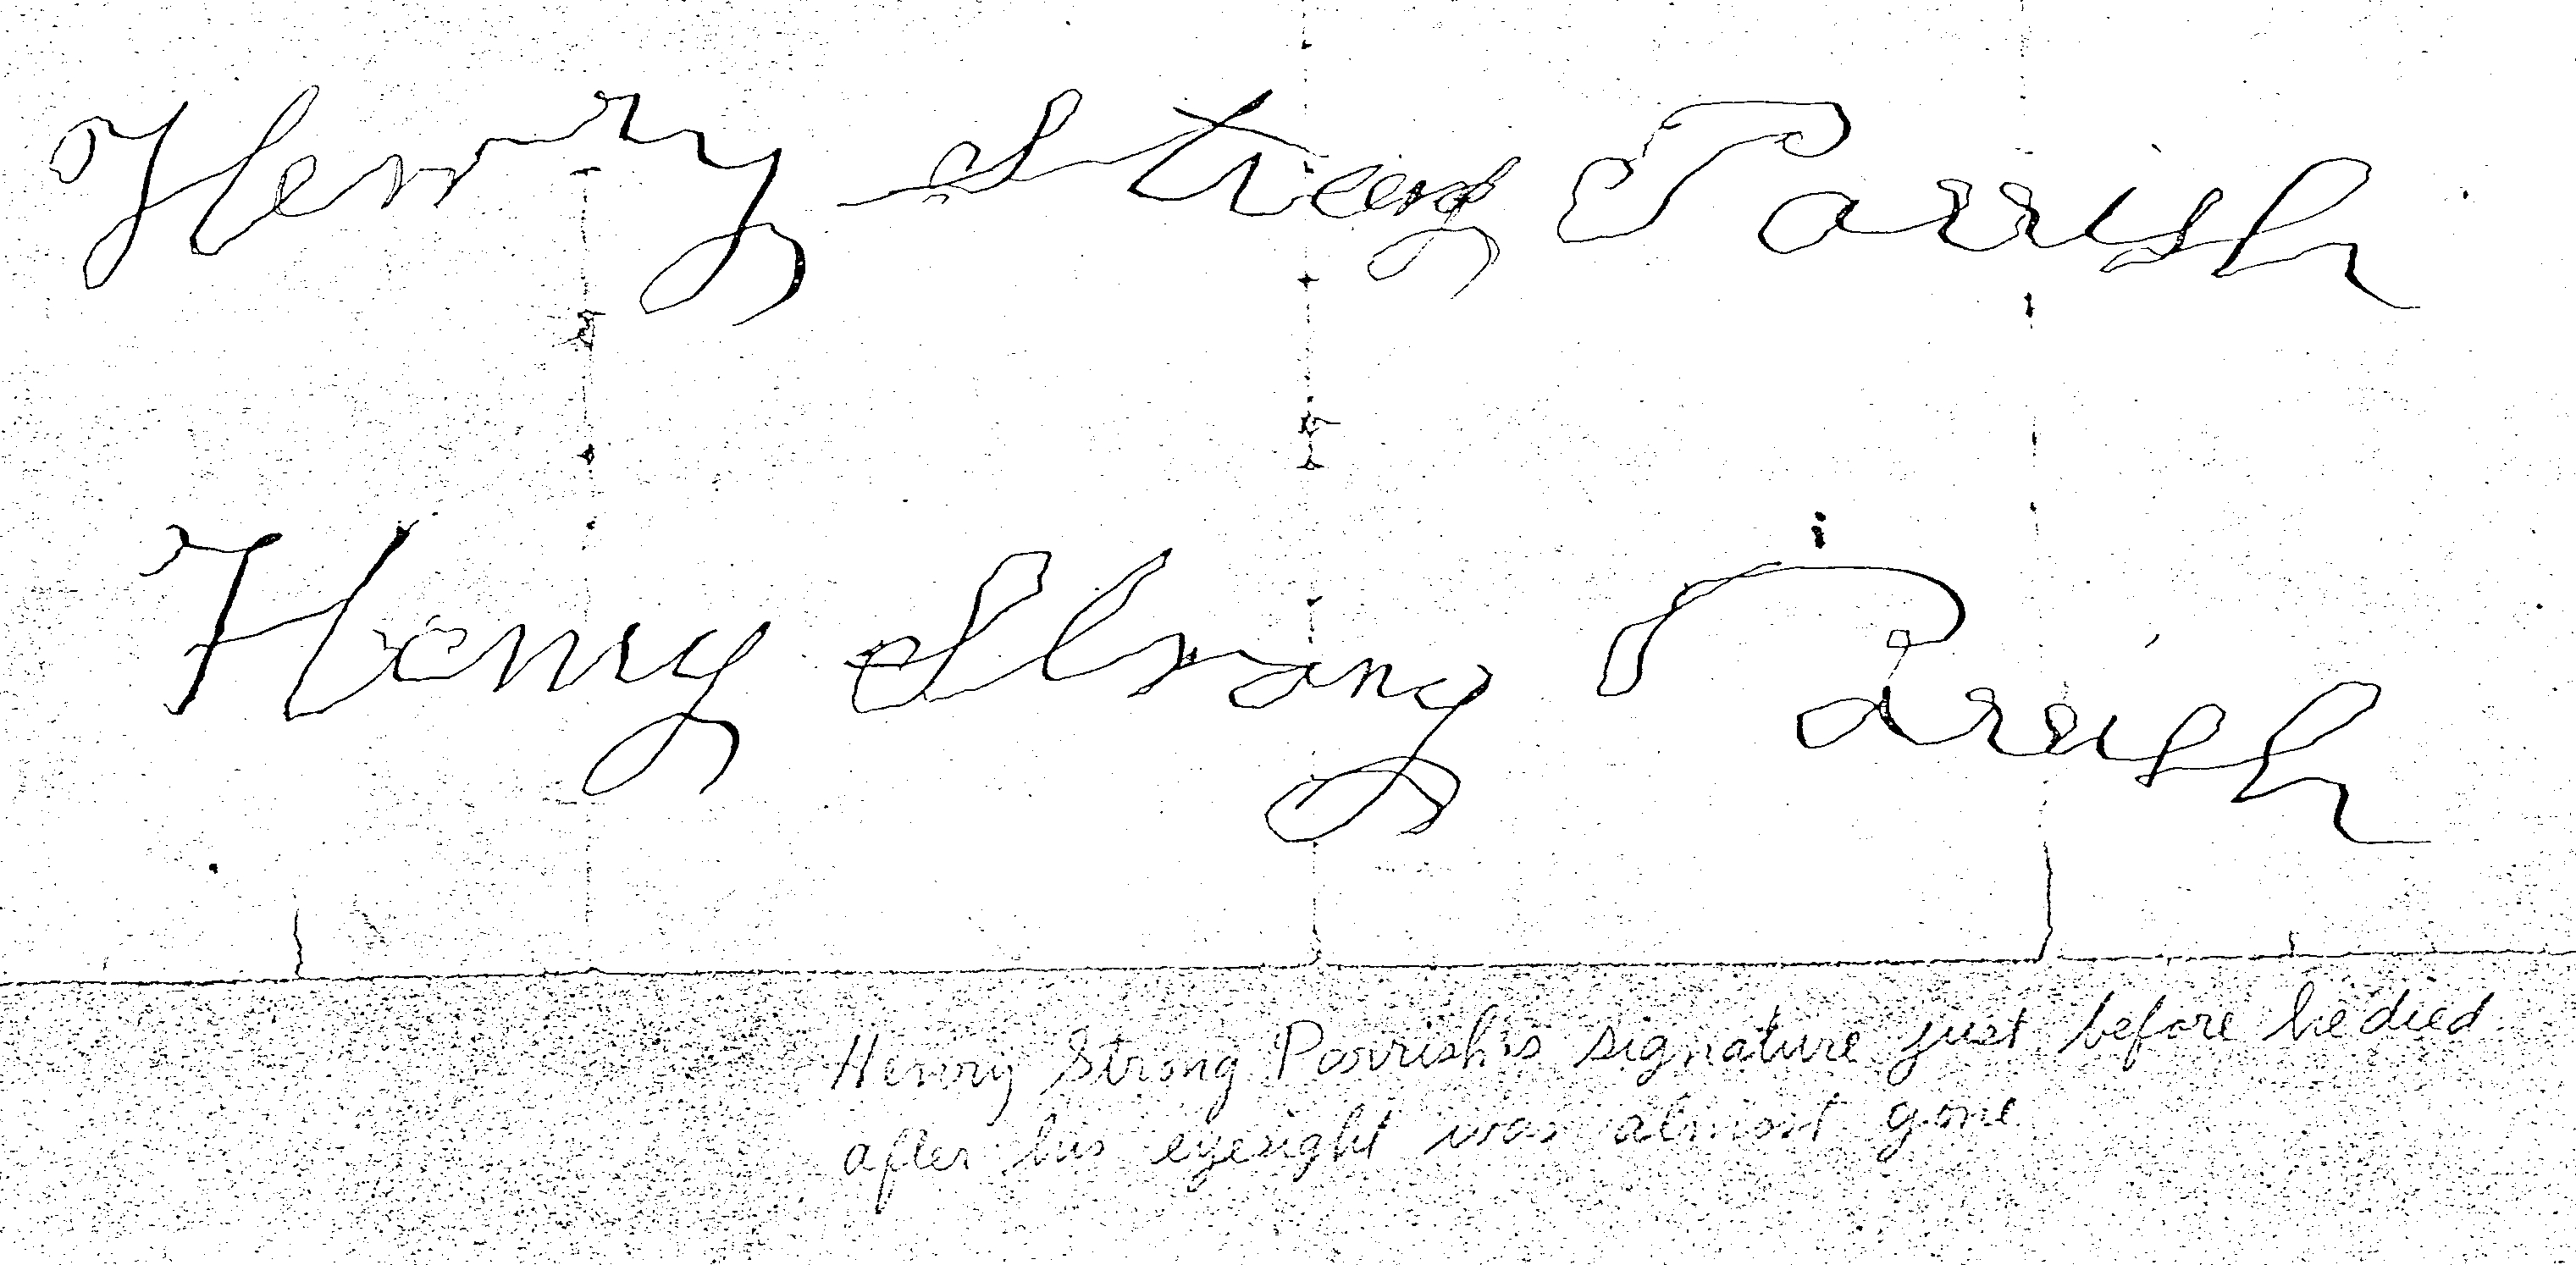 Henry Strong Parrish
Henry Strong Parrish
Henry Strong Parrish's signature just before he died
after his eyesight was almost gone